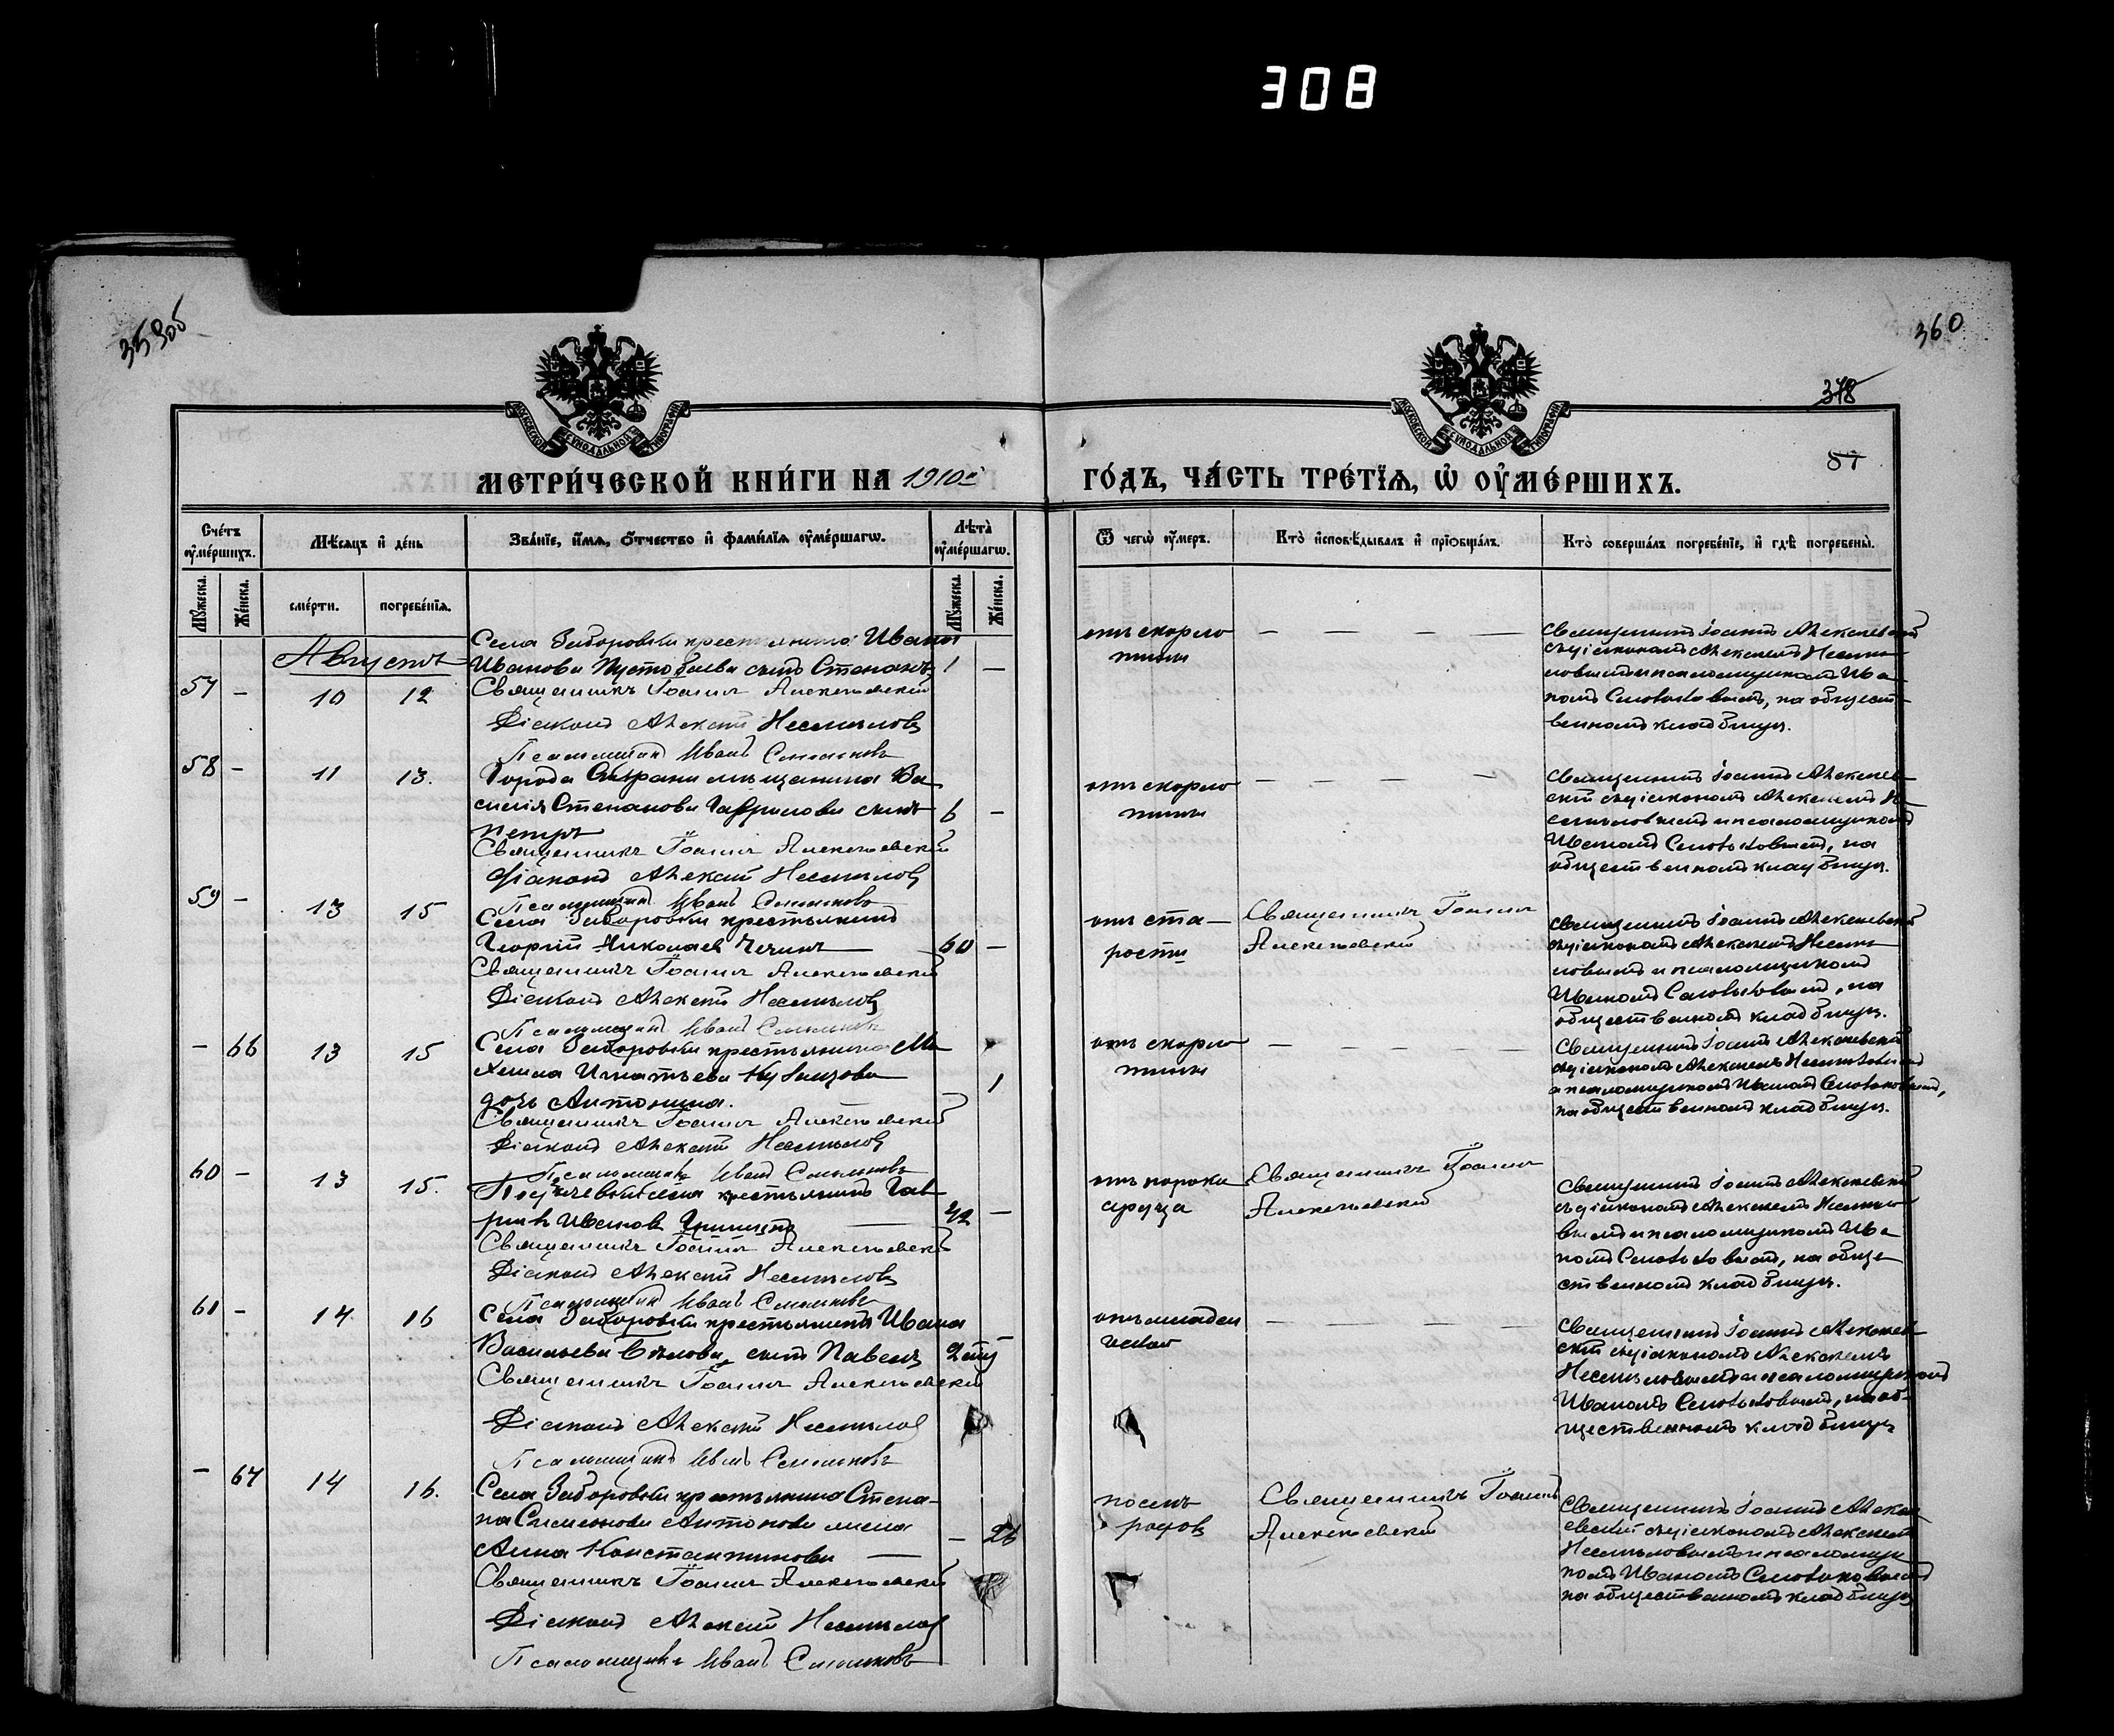 308
359об
360
378
57
МОСКОВСКОЙ СѴНОДАЛЬНОЙ ТИПОГРАФІИ
МОСКОВСКОЙ СѴНОДАЛЬНОЙ ТИПОГРАФІИ
МЕТРИ́ЧЕСКОЙ КНИ́ГИ НА 1910й
ГО́ДЪ, ЧА́СТЬ ТРЕ́ТЇѦ, Ѡ҆ ОУ҆МЕ́РШИХЪ.
Сче́тъ оу҆ме́ршихъ.
Мѣсяцъ и҆ де́нь
Зва́нїе, и҆́мѧ, ѻ҆́тчество и҆ фами́лїѧ оу҆ме́ршагѡ.
Лѣта̀ оу҆ме́ршагѡ.
Мꙋ́жеска.
Же́нска.
сме́рти.
погребе́нїѧ.
Мꙋ́жеска.
Же́нска.
Ѿ чегѡ̀ оу҆́меръ.
Кто̀ и҆сповѣ́дывалъ и҆ прїѡбща́лъ.
Кто̀ соверша́лъ погребе́нїе, и҆ гдѣ̀ погребены̀.
Августъ
57 – 10 12
Села Заборовки крестьянина Ивана
Иванова Пустобаева сынъ Степанъ 1 –
Священникъ Іоаннъ Алексѣевскій
Діаконъ Алексѣй Несмѣловъ
Псаломщикъ Иванъ
отъ скарла
тины
Священникъ Іоаннъ Алексѣевскій
съ діакономъ Алексѣемъ Несмѣ
ловымъ и псаломщикомъ Ива
номъ на общест
венномъ кладбищѣ.
58 – 11 13.
Города Сызрани мѣщанина Ва
силія Степанова Гаврилова сынъ 6 –
Петръ
Священникъ Іоаннъ Алексѣевскій
Діаконъ Алексѣй Несмѣловъ
Псаломщикъ Иванъ
отъ скарла
тины
Священникъ Іоаннъ Алексѣев
скій съ діакономъ Алексѣемъ Не
смѣловымъ и псаломщикомъ
Иваномъ на
общественномъ кладбищѣ.
59 – 13 15
Села Заборовки крестьянинъ
Георгій Николаевъ 60 –
Священникъ Іоаннъ Алексѣевскій
Діаконъ Алексѣй Несмѣловъ
Псаломщикъ Иванъ
отъ ста–
рости
Священникъ Іоаннъ
Алексѣевскій
Священникъ Іоаннъ Алексѣевскій
съ діакономъ Алексѣемъ Несмѣ
ловымъ и псаломщикомъ
Иваномъ на
общественномъ кладбищѣ.
– 66 13 15
Села Заборовки крестьянина
Игнатьева
дочь Антонина. 1
Священникъ Іоаннъ Алексѣевскій
Діаконъ Алексѣй Несмѣловъ
Псаломщикъ Иванъ
отъ скарла
тины
Священникъ Іоаннъ Алексѣевскій
съ діакономъ Алексѣемъ Несмѣловымъ
и псаломщикомъ Иваномъ
на общественномъ кладбищѣ.
60 – 13 15.
села крестьянинъ Гав
ріилъ Ивановъ 42 –
Священникъ Іоаннъ Алексѣевскій
Діаконъ Алексѣй Несмѣловъ
Псаломщикъ Иванъ
отъ порока
сердца
Священникъ Іоаннъ
Алексѣевскій
Священникъ Іоаннъ Алексѣевскій
съ діакономъ Алексѣемъ Несмѣло
вымъ и псаломщикомъ Ива
номъ на обще
ственномъ кладбищѣ.
61 – 14 16
Села Заборовки крестьянина Ивана
Васильева Бѣлова сынъ Павелъ –
Священникъ Іоаннъ Алексѣевскій
Діаконъ Алексѣй Несмѣловъ
Псаломщикъ Иванъ
отъ младен
ческой
Священникъ Іоаннъ Алексѣев
скій съ діакономъ Алексѣемъ
Несмѣловымъ и псаломщикомъ
Иваномъ на об
щественномъ кладбищѣ
– 67 14 16.
Села Заборовки крестьянина Степа–
на Симеонова Антонова жена
Анна Константинова – 26
Священникъ Іоаннъ Алексѣевскій
Діаконъ Алексѣй Несмѣловъ
Псаломщикъ Иванъ
послѣ
родовъ
Священникъ Іоаннъ
Алексѣевскій
Священникъ Іоаннъ Алексѣ
евскій съ діакономъ Алексѣемъ
Несмѣловымъ и псаломщи
комъ Иваномъ
на общественномъ кладбищѣ